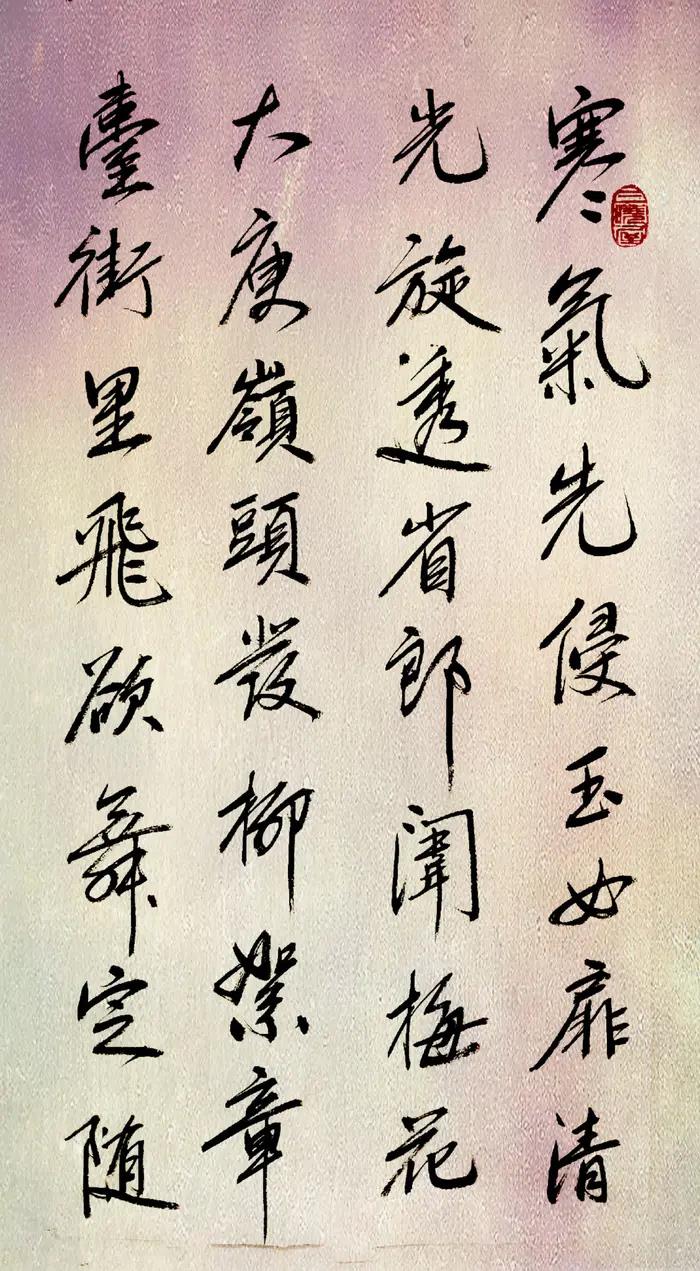 寒氣先侵玉女扉清
光旋透省郎闈梅花
大庾嶺頭發柳絮章
臺街里飛欲舞定随